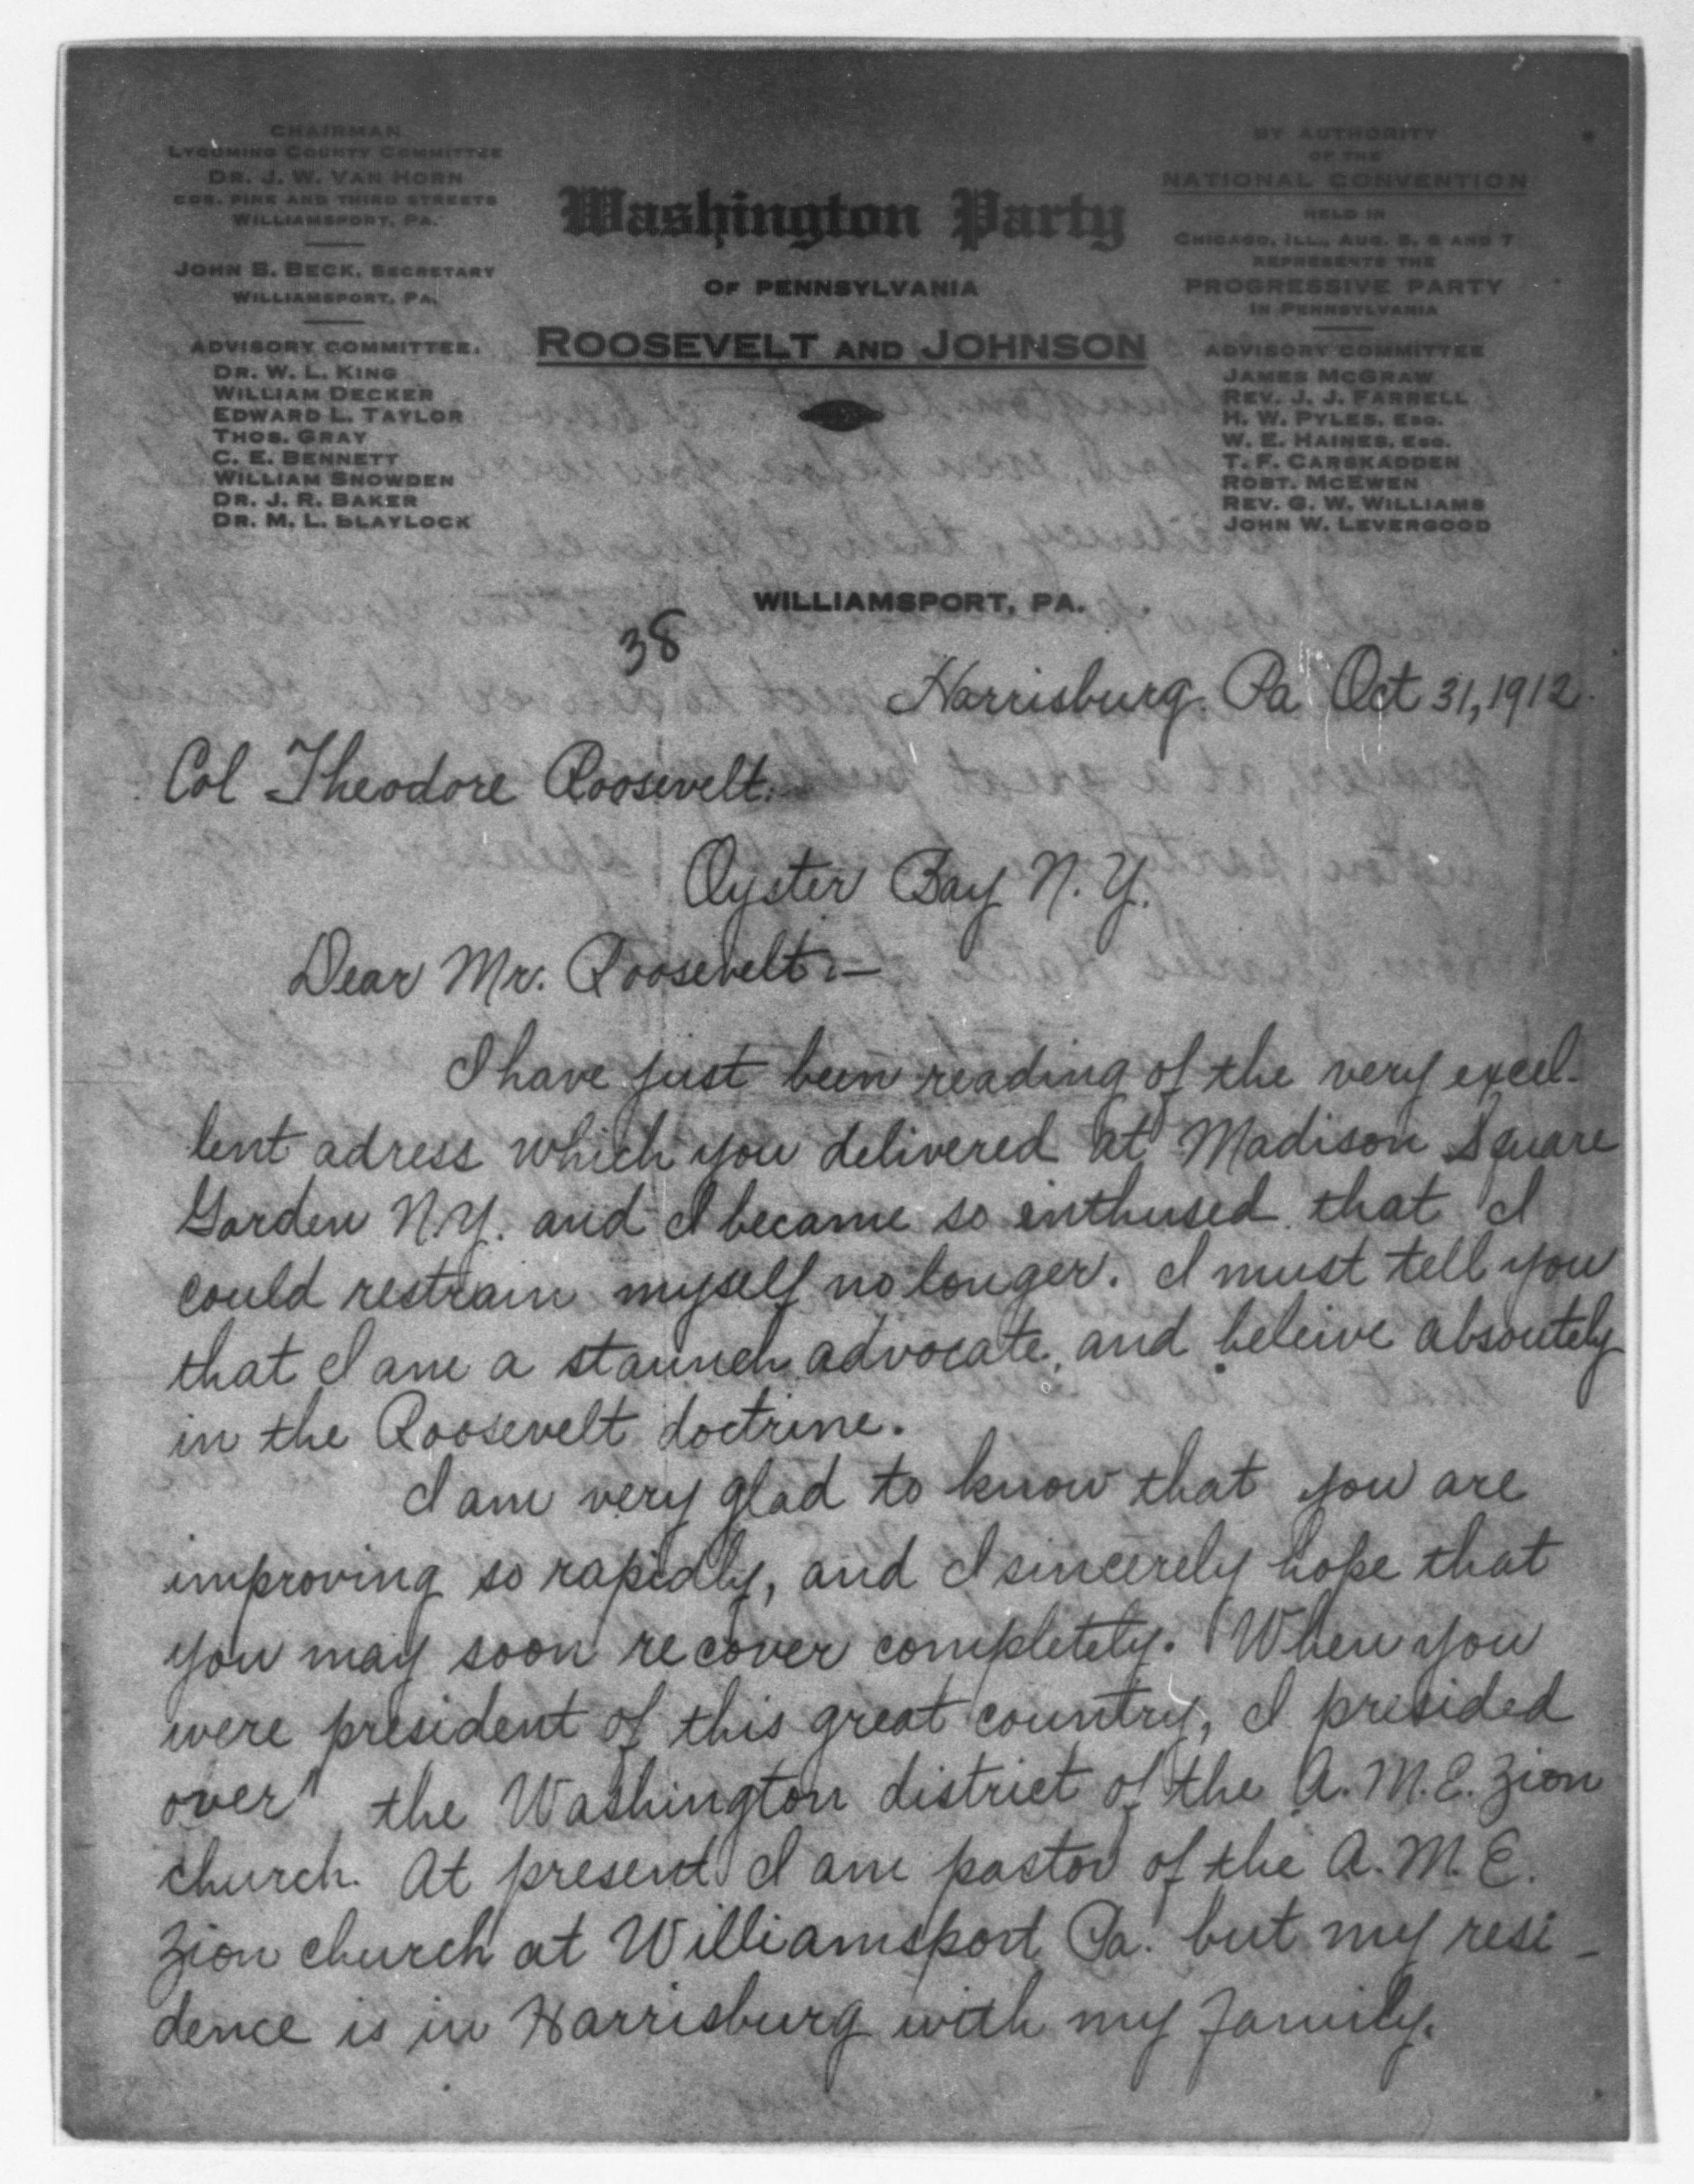 CHAIRMAN
LYCOMING COUNTY COMMITTEE
DR. J. W. VAN HORN
COR. PINE AND THIRD STREETS
WILLIAMSPORT, PA.
JOHN B. BECK, SECRETARY
WILLIAMSPORT, PA.
ADVISORY COMMITTEE.
DR. W. L. KING
WILLIAM DECKER
EDWARD L. TAYLOR
THOS. GRAY
C. E. BENNETT
WILLIAM SNOWDEN
DR. J. R. BAKER
DR. M. L. BLAYLOCK
Washington Party
OF PENNSYLVANIA
ROOSEVELT AND JOHNSON
BY AUTHORITY
OF THE
NATIONAL CONVENTION
HELD IN
CHICAGO, ILL., AUG. 5, 6 AND 7
REPRESENTS THE
PROGRESSIVE PARTY
IN PENNSYLVANIA
ADVISORY COMMITTEE
JAMES MCGRAW
REV. J. J. FARRELL
H. W. PYLES, ESQ.
W. E. HAINES, ESQ.
T. F. CARSKADDEN
ROBT. MCEWEN
REV. G. W. WILLIAMS
JOHN W. LEVERGOOD
WILLIAMSPORT, PA.
38
Harrisburg. Pa Oct 31, 1912.
Col Theodore Roosevelt:
Oyster Bay N. Y.
Dear Mr. Roosevelt:—
I have just been reading of the very excel-
lent adress which you delivered at Madison Square
Garden N.Y. and I became so enthused that I
could restrain myself no longer. I must tell you
that I am a staunch advocate, and beleive absoutely
in the Roosevelt doctrine.
I am very glad to know that you are
improving so rapidly, and I sincerely hope that
you may soon recover completely. When you
were president of this great country, I presided
over the Washington district of the A. M. E. Zion
church. At present I am pastor of the A. M. E.
Zion church at Williamsport Pa. but my resi-
dence is in Harrisburg with my family.